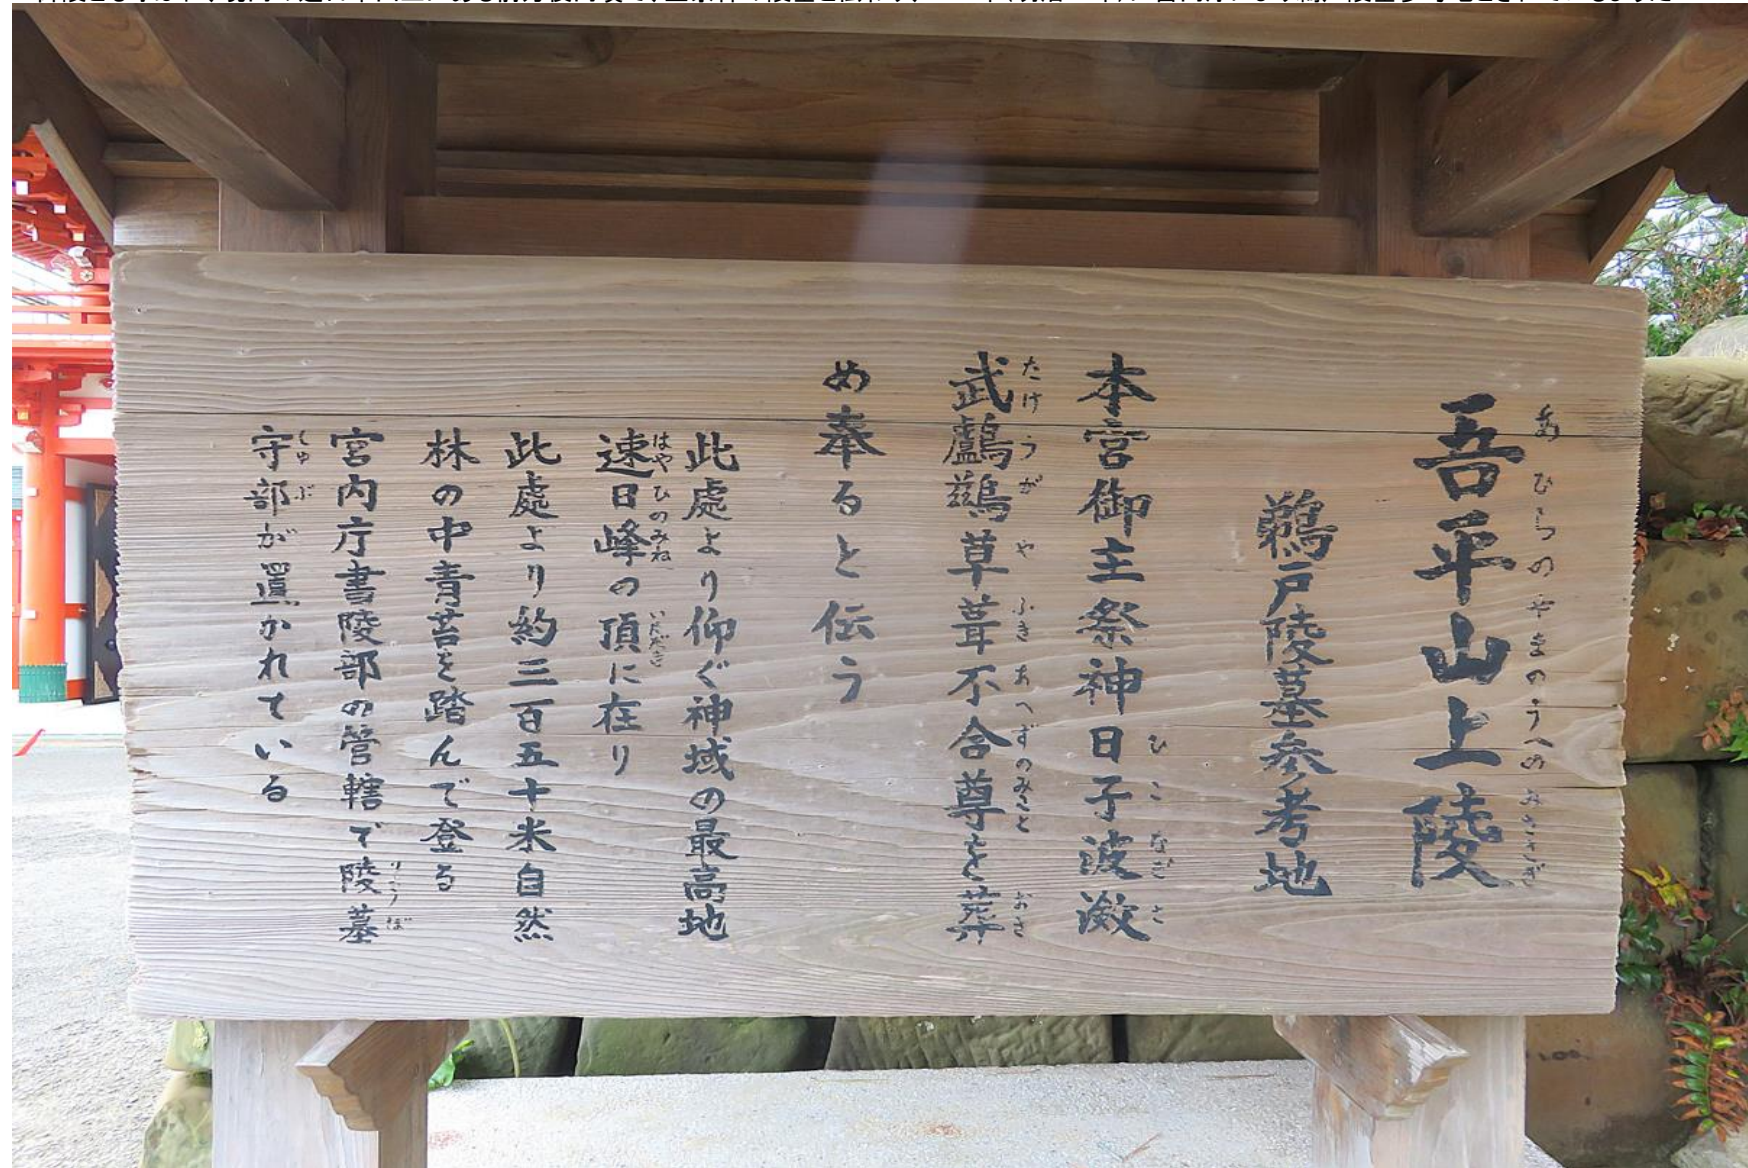 吾平山上陵
あひらのやまのうへのみささぎ
鵜戸陵墓参考地
本宮御主祭神日子波瀲
ひこなぎさ
武鸕鷀草葺不合尊を葬
たけうがやふきあへずのみことおさ
め奉ると伝う
此處より仰ぐ神域の最高地
速日峰の頂に在り
はやひのみねいただき
此處より約三百五十米自然
林の中青苔を踏んで登る
宮内庁書陵部の管轄で陵墓
りょうぼ
守部が置かれている
しゅぶ